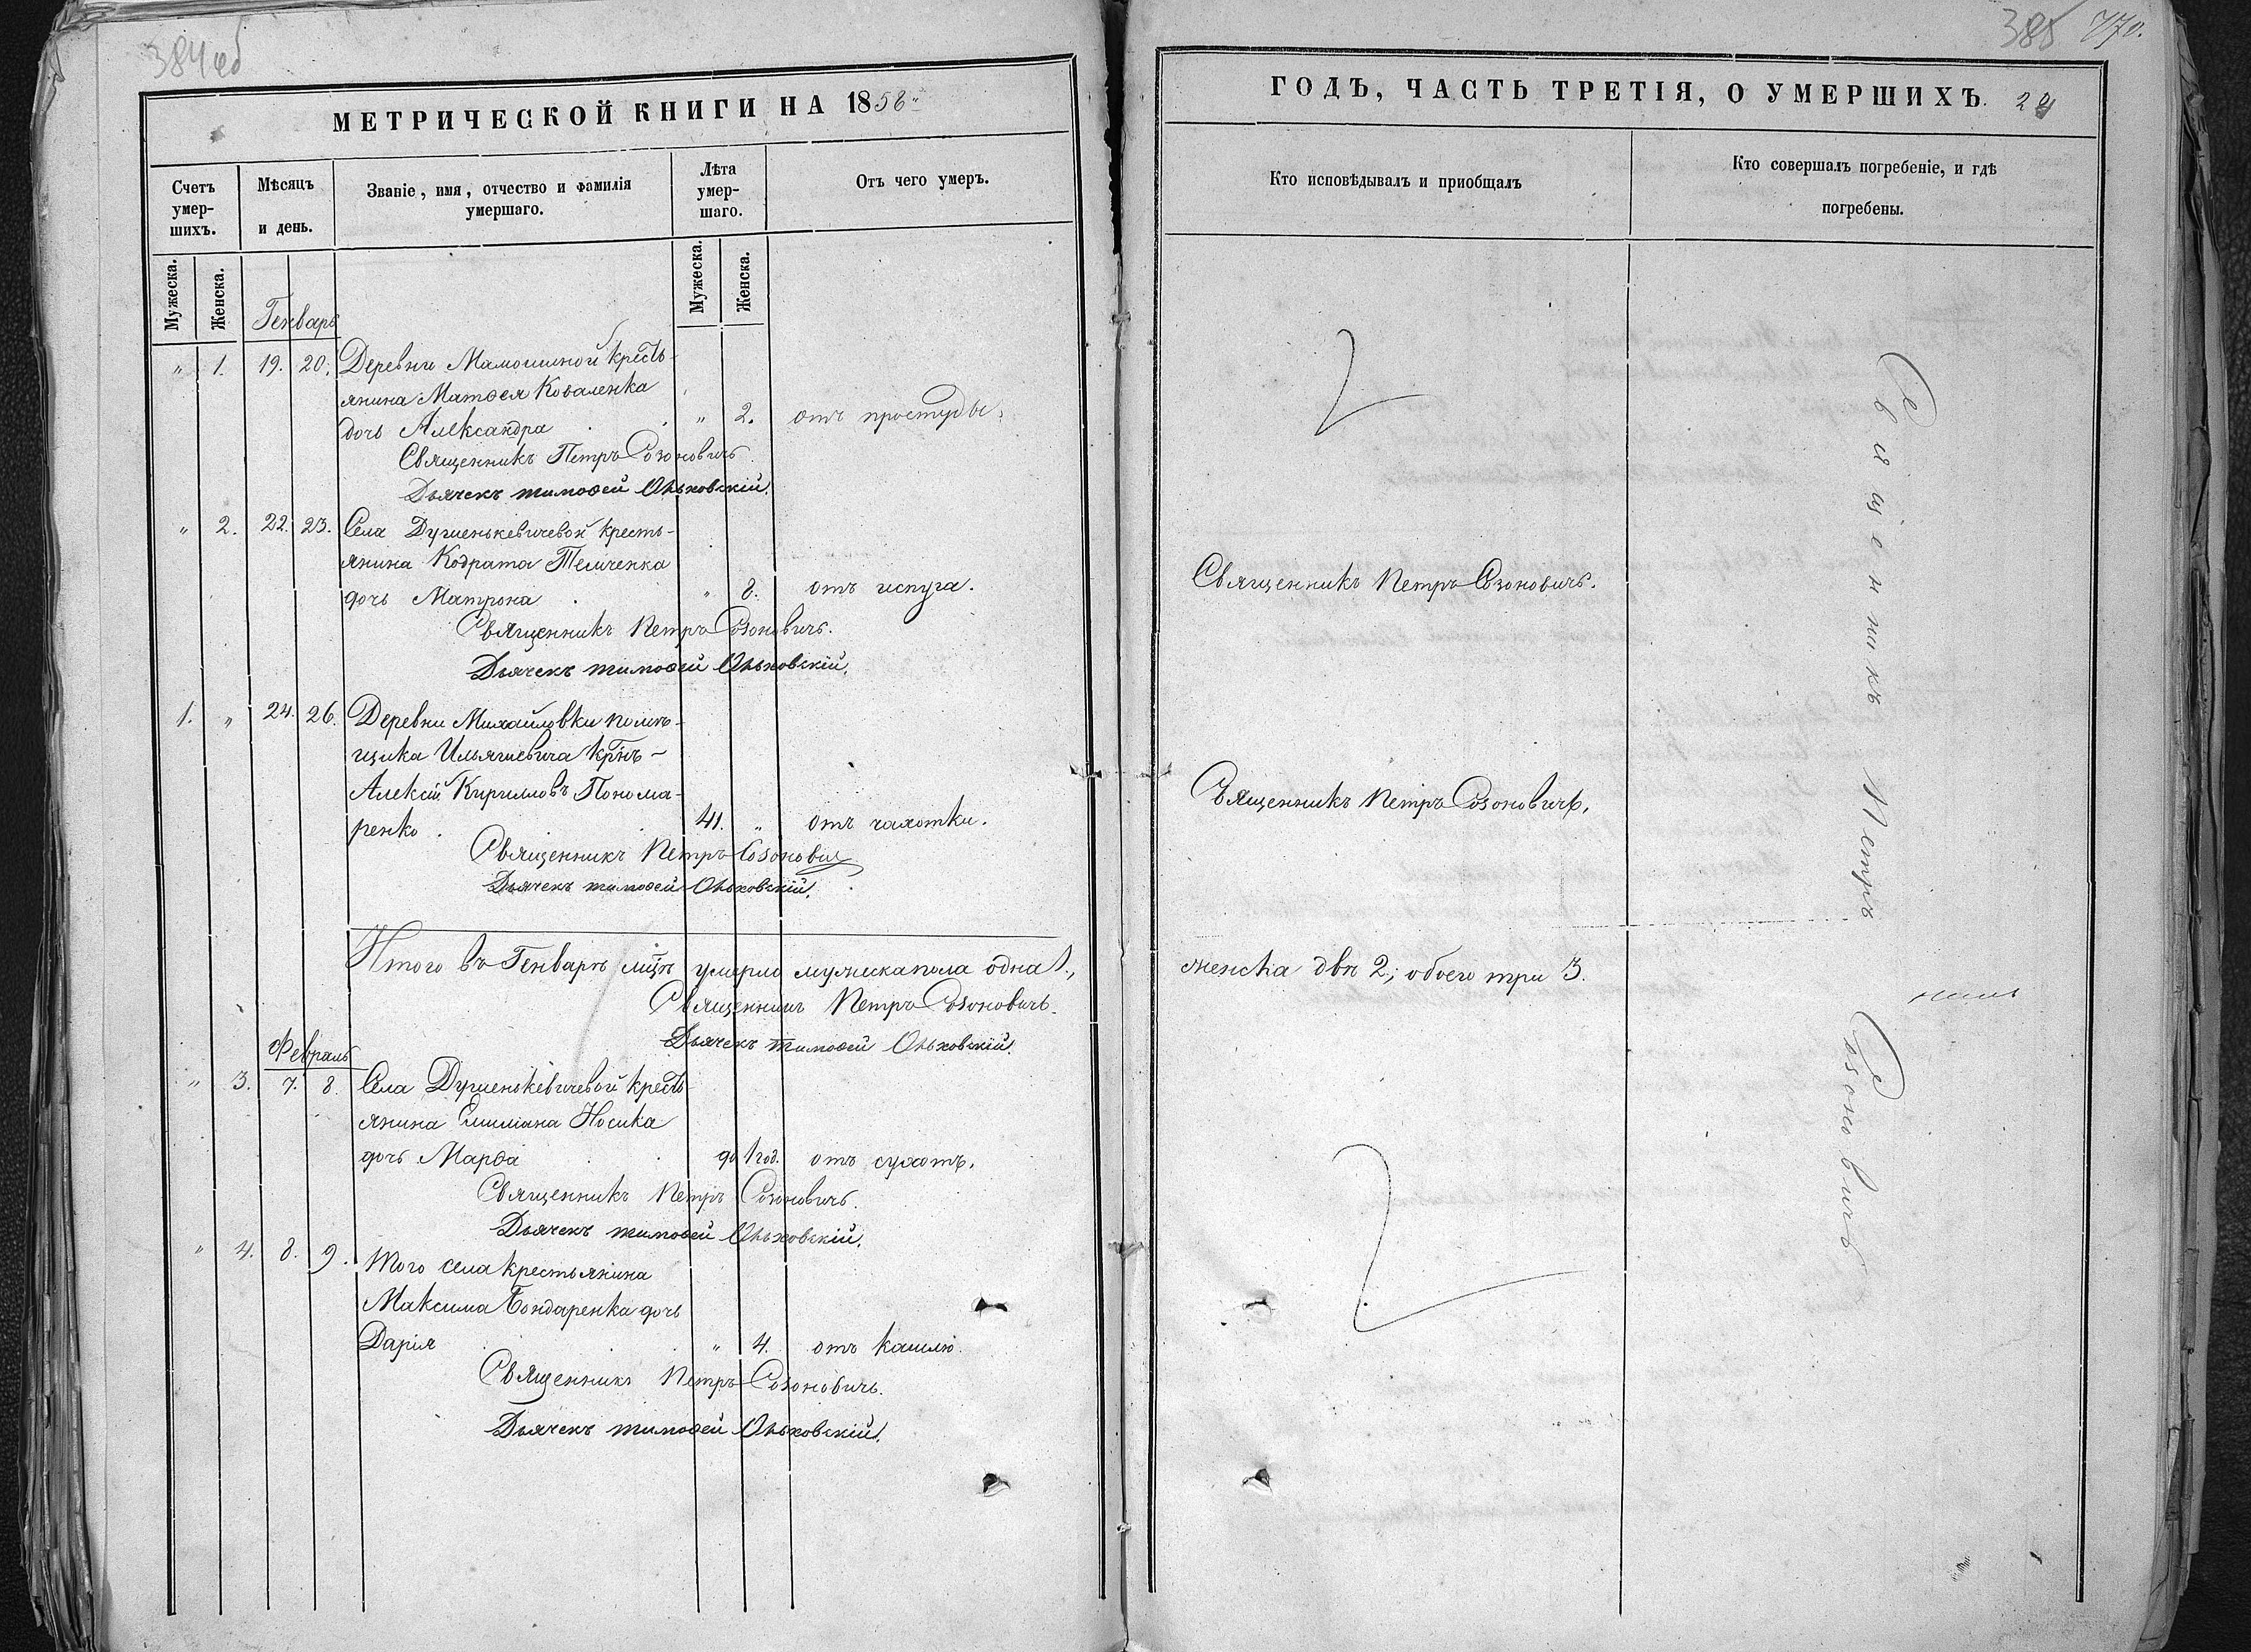 384 об
МЕТРИЧЕСКОЙ КНИГИ НА 1858
Счетъ умер-шихъ.
Мѣсяцъ и день.
Званіе, имя, отчество и фамилія умершаго.
Лѣта умер-шаго.
Отъ чего умеръ.
Мужеска.
Женска.
Мужеска.
Женска.
Генварь
" 1. 19. 20. Деревни Мамошиной кресть-
янина Матѳея Коваленка
дочь Александра " 2. отъ простуды.
Священникъ Петръ Созоновичъ.
Дьячекъ тимоѳей Ольховскій.
" 2. 22. 23. Села Душенькевичевой кресть-
янина Кодрата Теличенка
дочь Матрона " 8. отъ испуга.
Священникъ Петръ Созоновичъ.
Дьячекъ тимоѳей Ольховскій.
1. " 24. 26. Деревни Михайловки помѣ-
щика Ильяшевича крнъ-
Алексій Кирилловъ Понома-
ренко. 41. " отъ чахотки.
Священникъ Петръ Созоновичъ
Дьячекъ тимоѳей Ольховскій.
Итого въ Генварѣ мцѣ умерло мужеска пола одна 1.,
Священникъ Петръ Созоновичъ.
Дьячекъ тимоѳей Ольховскій.
Февраль
" 3. 7. 8. Села Душенькевичевой кресть
янина Емиліана Носика
дочь Марѳа до 1 год. отъ сухотъ.
Священникъ Петръ Созоновичъ.
Дьячекъ тимоѳей Ольховскій.
" 4. 8. 9. Того села крестьянина
Максима Бондаренка дочь
Дарія " 4. отъ кашлю.
Священникъ Петръ Созоновичъ.
Дьячекъ тимоѳей Ольховскій.
385 770.
ГОДЪ, ЧАСТЬ ТРЕТІЯ, О УМЕРШИХЪ.
Кто исповѣдывалъ и приобщалъ
Кто совершалъ погребеніе, и гдѣ
погребены.
Священникъ Петръ Созоновичъ.
Священникъ Петръ Созоновичъ.
женска двѣ 2.; обоего три 3.
Священникъ Петръ
Созоновичъ